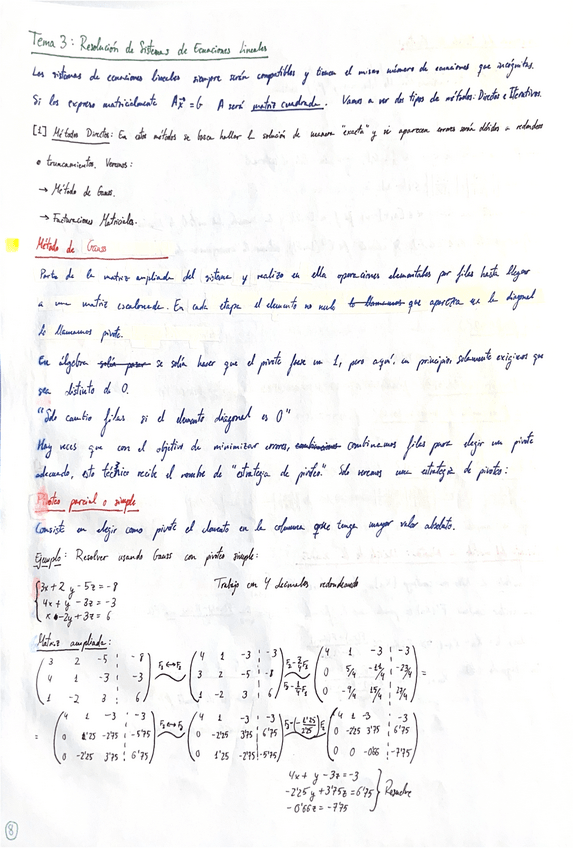 Tema 3: Resolución de Sistemas de Ecuaciones Lineales
Los sistemas de ecuaciones lineales siempre serán compatibles y tienen el mismo número de ecuaciones que incógnitas.
Si los expreso matricialmente Ax = b A será matriz cuadrada. Vamos a ver dos tipos de métodos: Directos e Iterativos.
[1] Métodos Directos: En estos métodos se busca hallar la solución de manera "exacta" y si aparecen errores serán debidos a redondeos
o truncamientos. Veremos:
→ Método de Gauss.
→ Factorizaciones Matriciales.
Método de Gauss
Parto de la matriz ampliada del sistema y realizo en ella operaciones elementales por filas hasta llegar
a una matriz escalonada. En cada etapa el elemento no nulo lo llamamos que aparezca en la diagonal
lo llamamos pivote.
En álgebra solía pasar se solía hacer que el pivote fuese un 1, pero aquí, en principio, solamente exigimos que
sea distinto de 0.
"Solo cambio filas si el elemento diagonal es 0"
Hay veces que con el objetivo de minimizar errores, combinamos filas para elegir un pivote
adecuado, esta técnica recibe el nombre de "estrategia de pivoteo". Solo veremos una estrategia de pivoteo:
Pivoteo parcial o simple
Consiste en elegir como pivote el elemento en la columna que tenga mayor valor absoluto.
Ejemplo: Resolver usando Gauss con pivoteo simple:
3x + 2y - 5z = -8 Trabajo con 4 decimales redondeando
4x + y - 3z = -3
x - 2y + 3z = 6
Matriz ampliada:
3 2 -5 -8 F₁↔F₂ 4 1 -3 -3 F₂-3/4F₁ 4 1 -3 -3
4 1 -3 -3 3 2 -5 -8 0 5/4 -11/4 -23/4 =
1 -2 3 6 1 -2 3 6 F₃-1/4F₁ 0 -9/4 15/4 27/4
= 4 1 -3 -3 F₂↔F₃ 4 1 -3 -3 4 1 -3 -3
0 1'25 -2'75 -5'75 0 -2'25 3'75 6'75 F₃-(-1'25/2'25)F₂ 0 -2'25 3'75 6'75
0 -2'25 3'75 6'75 0 1'25 -2'75 -5'75 0 0 -0'66 -7'75
4x + y - 3z = -3
-2'25y + 3'75z = 6'75 Resuelve
-0'66z = -7'75
8